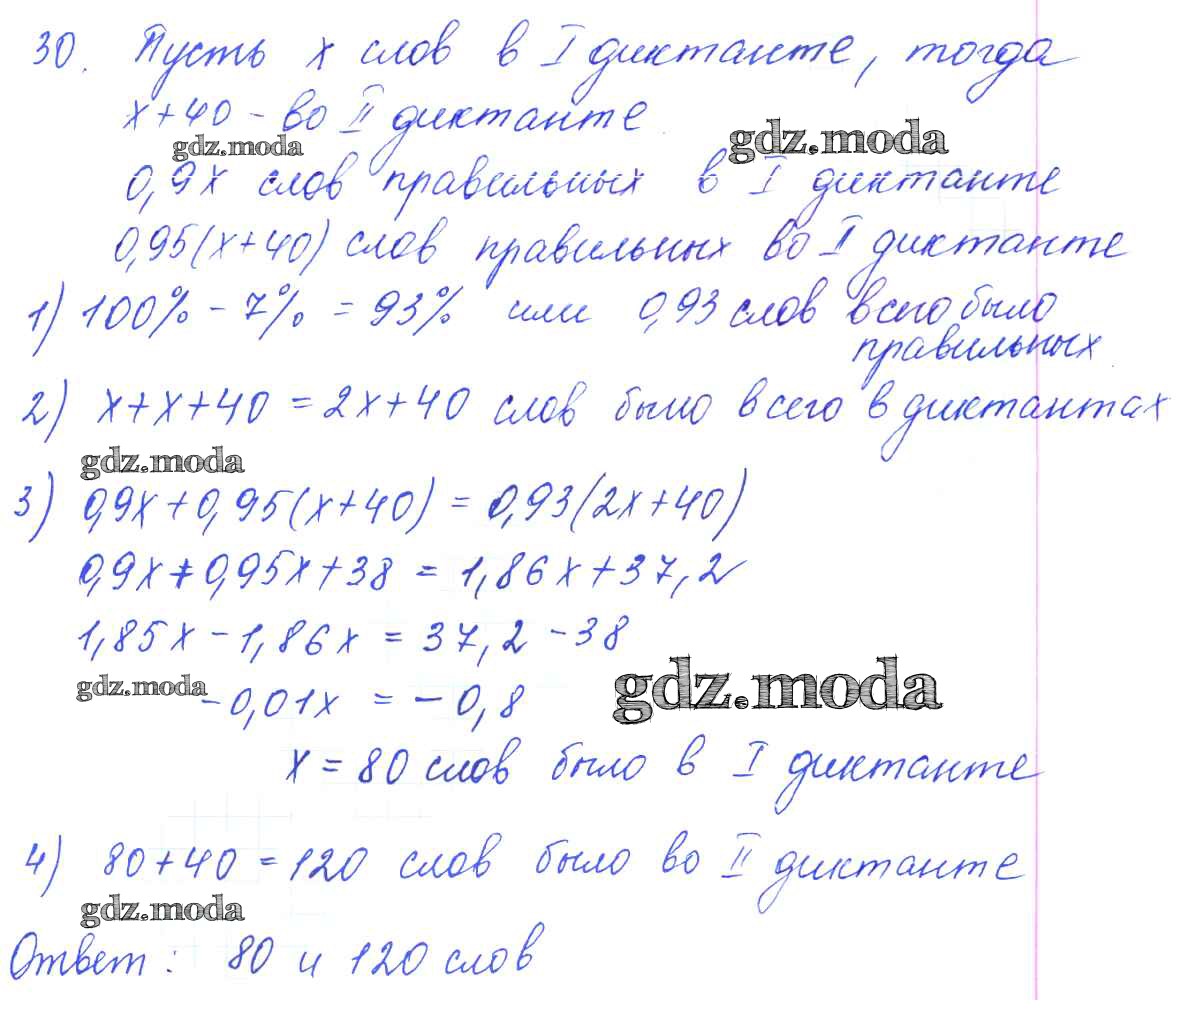 30. Пусть x слов в I диктанте, тогда
x+40 - во II диктанте
gdz.moda
gdz.moda
0,9x слов правильных в I диктанте
0,95(x+40) слов правильных во II диктанте
1) 100% - 7% = 93% или 0,93 слов всего было
правильных
2) x+x+40 = 2x+40 слов было всего в диктантах
gdz.moda
3) 0,9x+0,95(x+40) = 0,93(2x+40)
0,9x+0,95x+38 = 1,86x+37,2
1,85x-1,86x = 37,2-38
gdz.moda
-0,01x = -0,8
gdz.moda
x = 80 слов было в I диктанте
4) 80+40 = 120 слов было во II диктанте
gdz.moda
Ответ: 80 и 120 слов